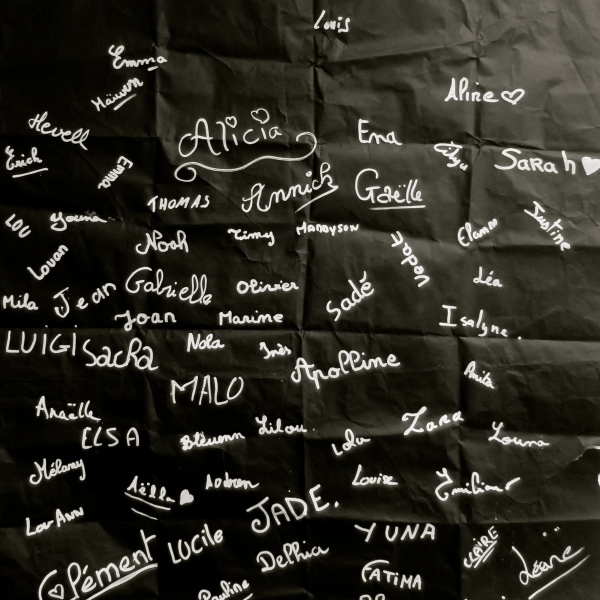 Louis
Emma
Maïwenn
Aline
Hevell
Alicia
Ena
Erich
Emma
Sarah
THOMAS
Annick
Gaëlle
LOU
Youna
Noah
Timy
MADDYSON
Justine
Louan
Gabrielle
Olivier
Sadé
Léa
Mila
Jean
Joan
Marine
Isalyne.
LUIGI
Sacha
Nola
Inès
Apolline
MALO
Anita
Anaëlle
ELSA
Lilou.
Lola
Zara
Louna
Mélany
Aëlle
Louise
Lou-Ann
JADE.
YUNA
Clément
LUCILE
Delhia
CLAIRE
Léane
FATIMA
Pauline